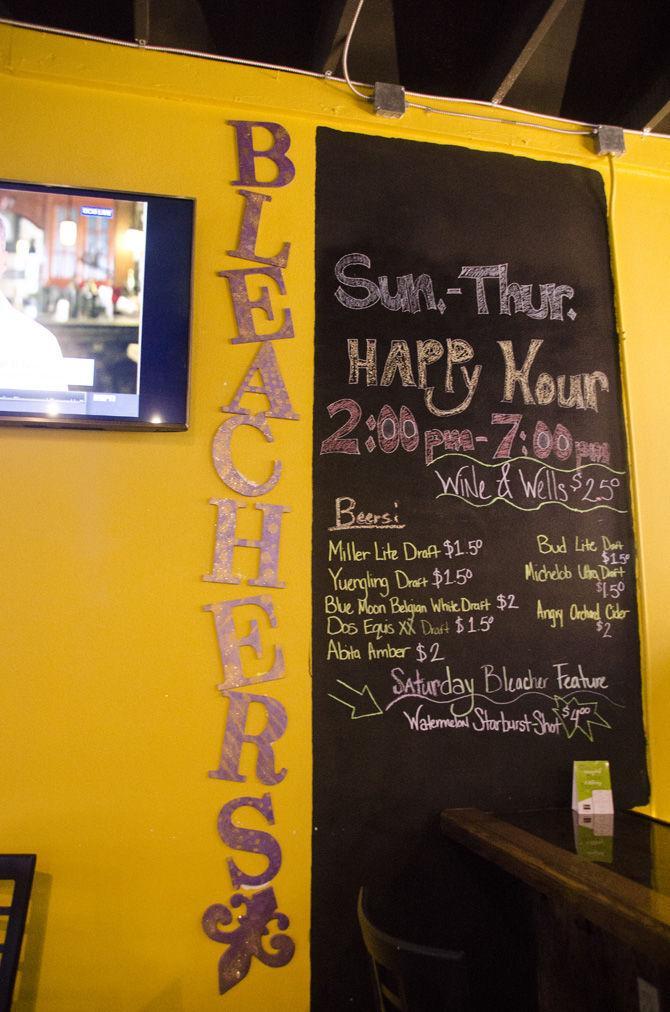 BLEACHERS
Sun.-Thur.
HAPPy Hour
2:00 pm-7:00 pm
WiNe & Wells $2.50
Beers:
Miller Lite Draft $1.50
Yuengling Draft $1.50
Blue Moon Belgian White Draft $2
Dos Equis XX Draft $1.50
Abita Amber $2
Bud Lite Draft
$1.50
Michelob Ultra Draft
$1.50
Angry Orchard Cider
$2
Saturday Bleacher Feature
Watermelon Starburst-Shot $4.00